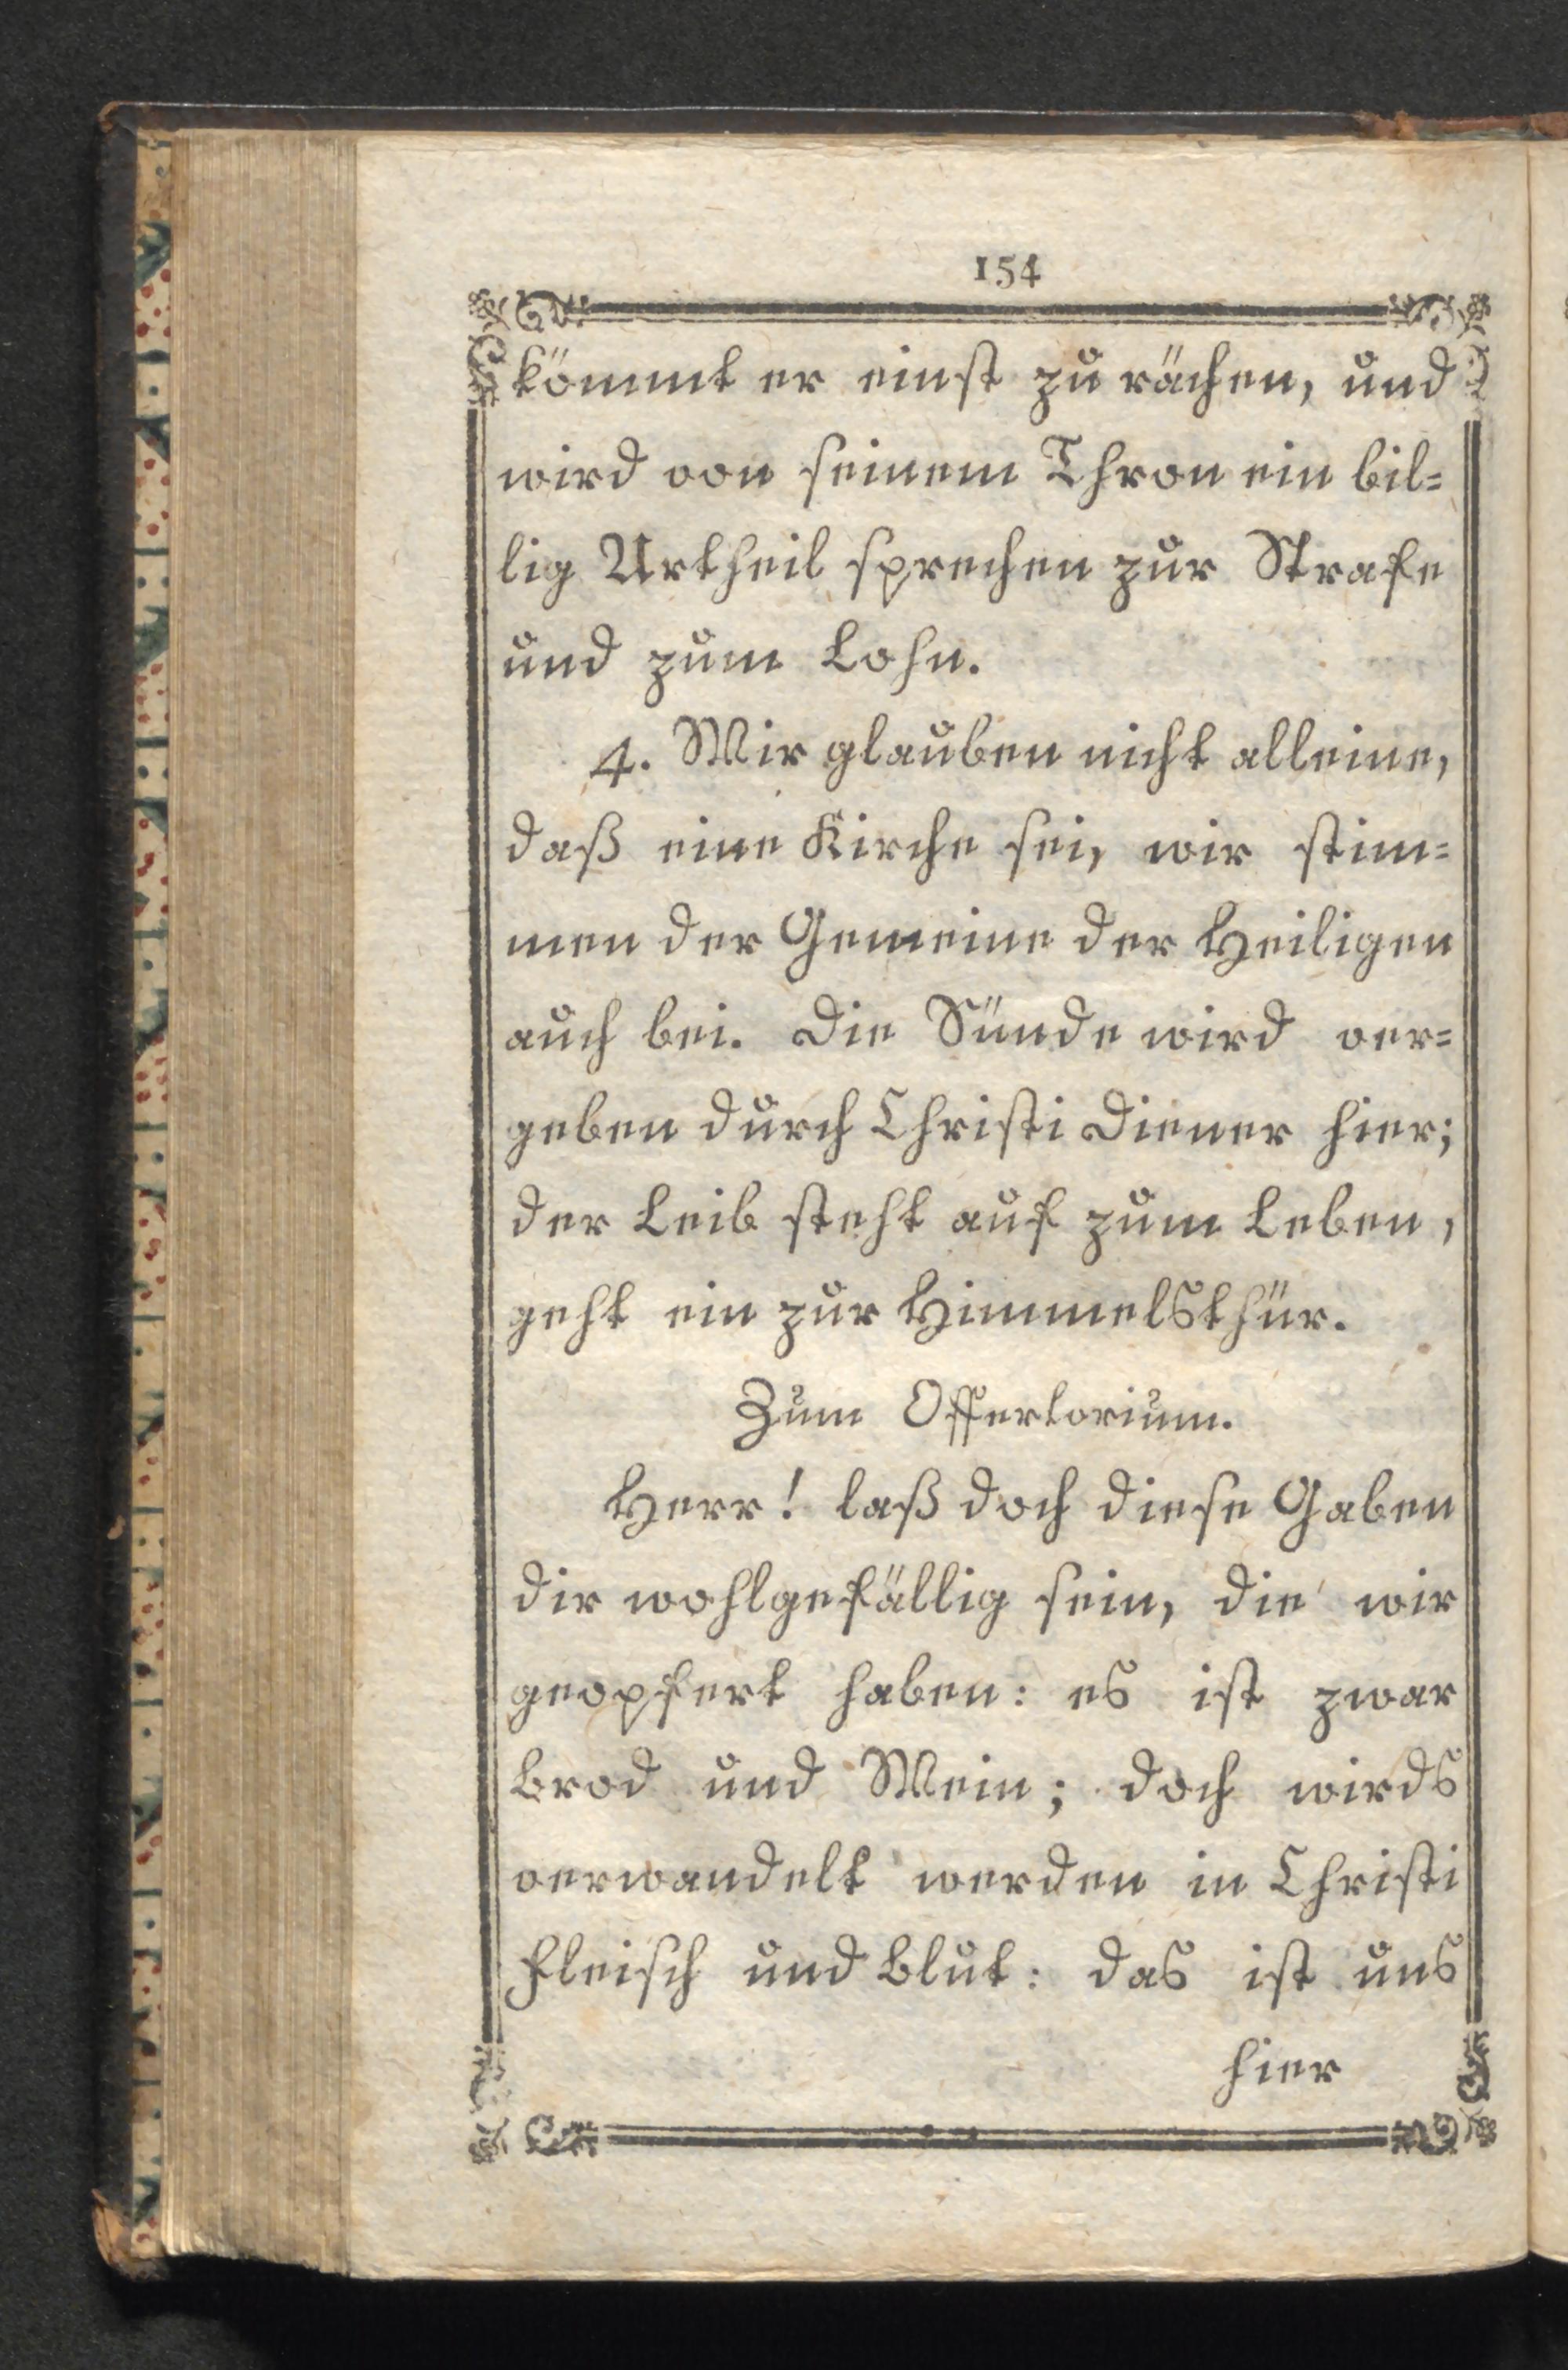 154
kömmt er einst zu rächen, und
wird von seinem Thron ein bil=
lig Urtheil sprechen zur Strafe
und zum Lohn.
4. Wir glauben nicht alleine,
daß eine Kirche sei, wir stim=
men der Gemeine der Heiligen
auch bei. Die Sünde wird ver=
geben durch Christi Diener hier;
der Leib steht auf zum Leben,
geht ein zur Himmelsthür.
Zum Offertorium.
Herr! laß doch diese Gaben
dir wohlgefällig sein, die wir
geopfert haben: es ist zwar
Brod und Wein; doch wirds
verwandelt werden in Christi
Fleisch und Blut: das ist uns
hier